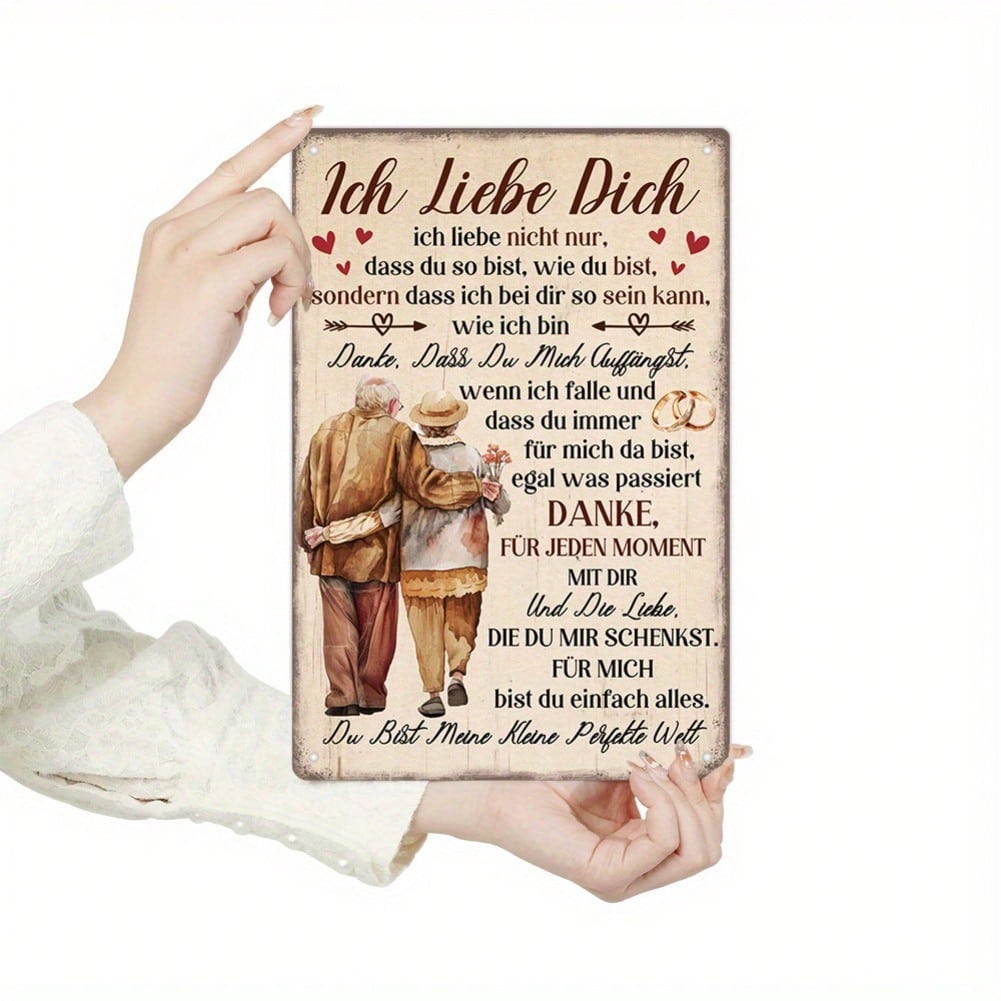 Ich Liebe Dich
ich liebe nicht nur,
dass du so bist, wie du bist,
sondern dass ich bei dir so sein kann,
wie ich bin
Danke, Dass Du Mich Auffängst,
wenn ich falle und
dass du immer
für mich da bist,
egal was passiert
DANKE,
FÜR JEDEN MOMENT
MIT DIR
Und Die Liebe,
DIE DU MIR SCHENKST.
FÜR MICH
bist du einfach alles.
Du Bist Meine Kleine Perfekte Welt